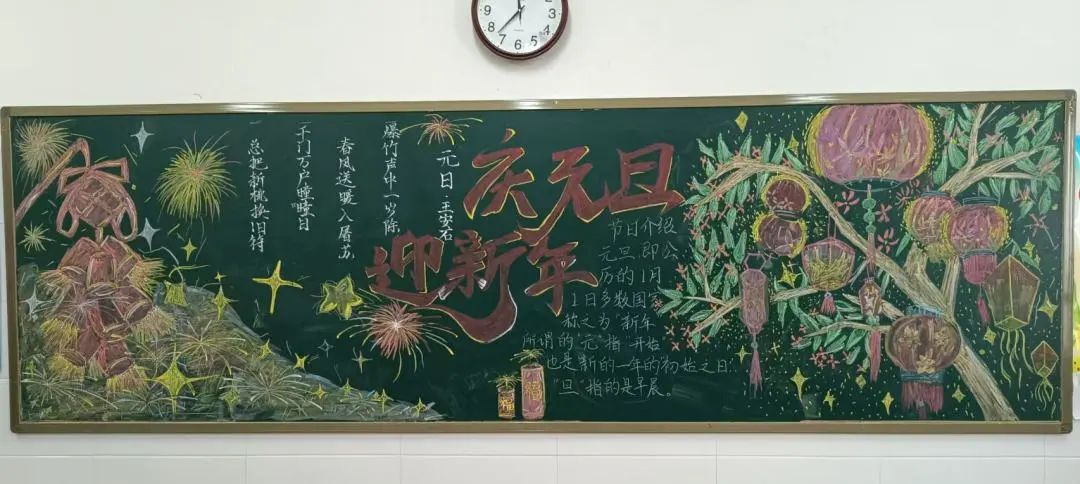 庆元旦
迎新年
元日 王安石
爆竹声中一岁除
春风送暖入屠苏
千门万户曈曈日
总把新桃换旧符
节日介绍
元旦,即公
历的1月
1日多数国家
称之为"新年
所谓的"元"指"开始
也是新的一年的初始之日.
"旦"指的是早晨。
福
9
8
7
6
5
4
3